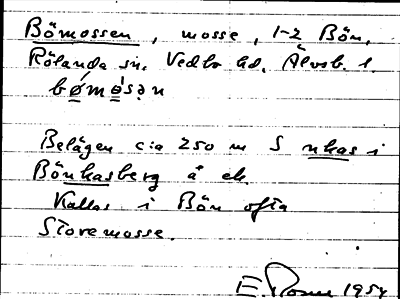 Bömossen, mosse, 1-2 Bön,
Rölanda sn. Vedbo hd. Älvsb. l.
bø̀mø̀sən
Belägen c:a 250 m S nkas i
Bönkasberg å ek.
Kallas i Bön ofta
Storemosse.
E. 1954